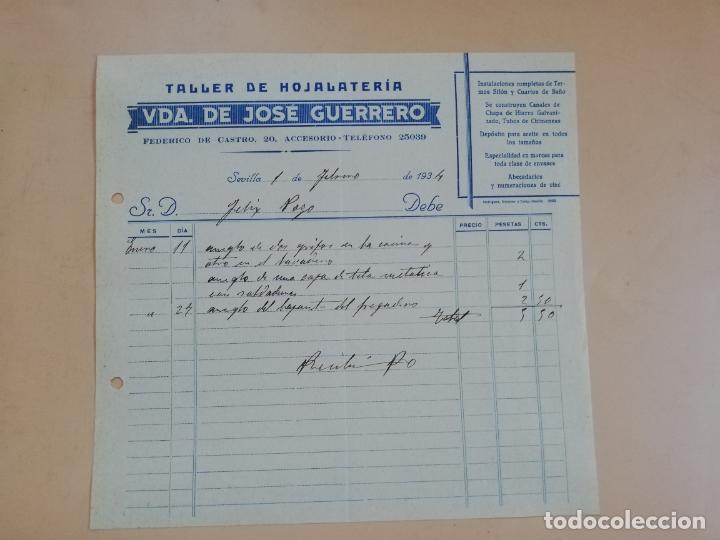 TALLER DE HOJALATERÍA
VDA. DE JOSÉ GUERRERO
FEDERICO DE CASTRO, 20, ACCESORIO - TELÉFONO 25039
Instalaciones completas de Ter-
mos Sifón y Cuartos de Baño
Se construyen Canales de
Chapa de Hierro Galvani-
zado, Tubos de Chimeneas
Depósito para aceite en todos
los tamaños
Especialidad en marcas para
toda clase de envases
Abecedarios
y numeraciones de zinc
Sevilla 1 de Febrero de 1934
Sr. D. Felix Pozo Debe
MES DÍA PRECIO PESETAS CTS.
Enero 11 arreglo de dos grifos en la cocina y
otro en el lavadero 2
arreglo de una capa de tela metalica
con soldaduras 1
" 27 arreglo del del fregadero 2 50
Total 5 50
Recibí
todocoleccion.net